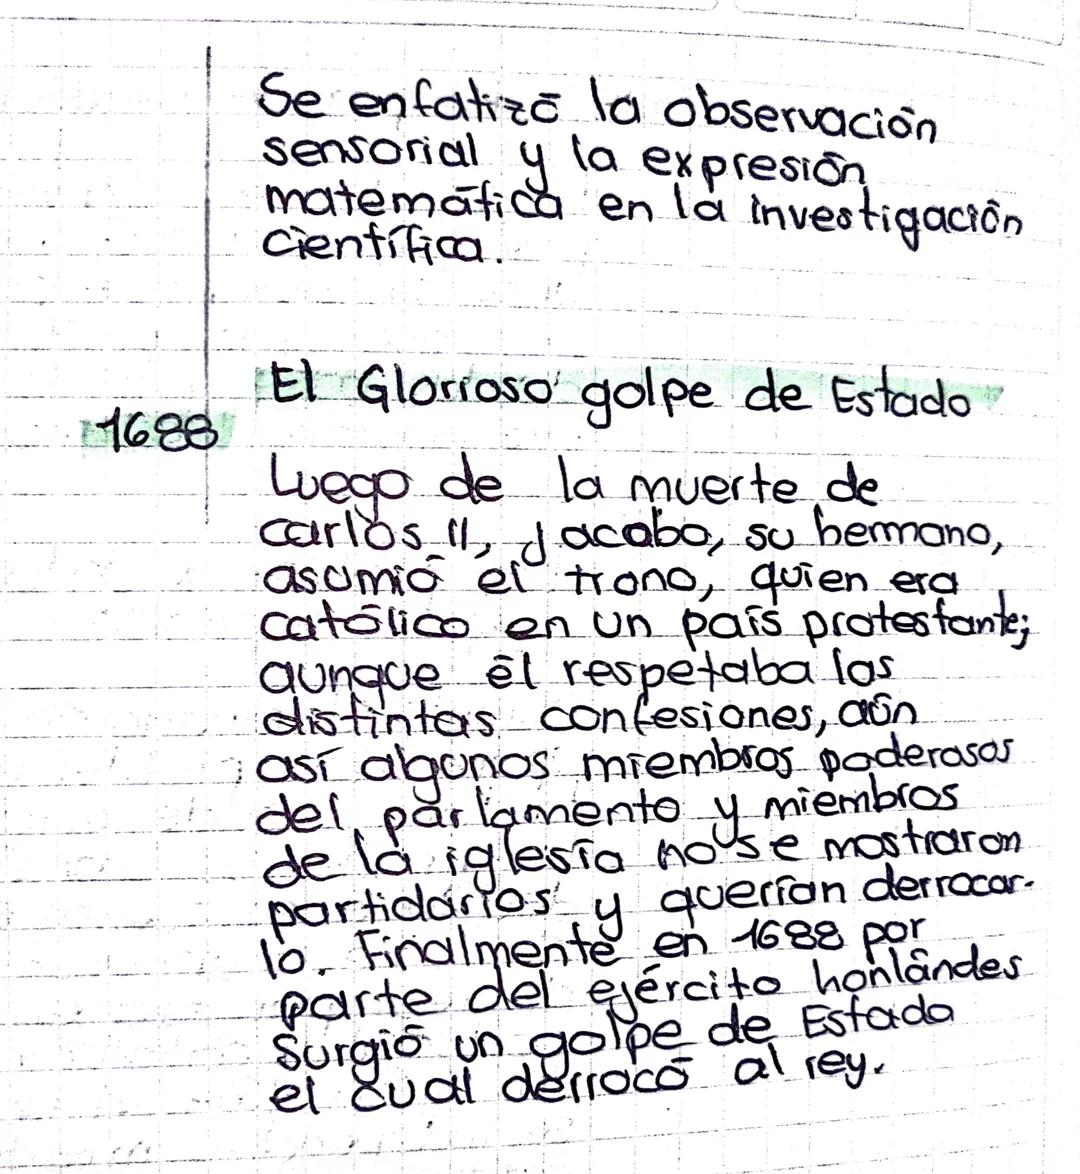 Se enfatizó la observación
sensorial y la expresión
matemática en la investigación
científica.
El Glorioso golpe de Estado
1688
Luego de la muerte de
carlos II, Jacobo, su hermano,
asumió el trono, quien era
católico en un país protestante;
aunque él respetaba las
distintas confesiones, aún
así algunos miembros poderosos
del parlamento y miembros
de la iglesia no se mostraron
partidarios y querían derrocar-
lo. Finalmente en 1688 por
parte del ejército honlándes
surgió un golpe de Estado
el cual derrocó al rey.